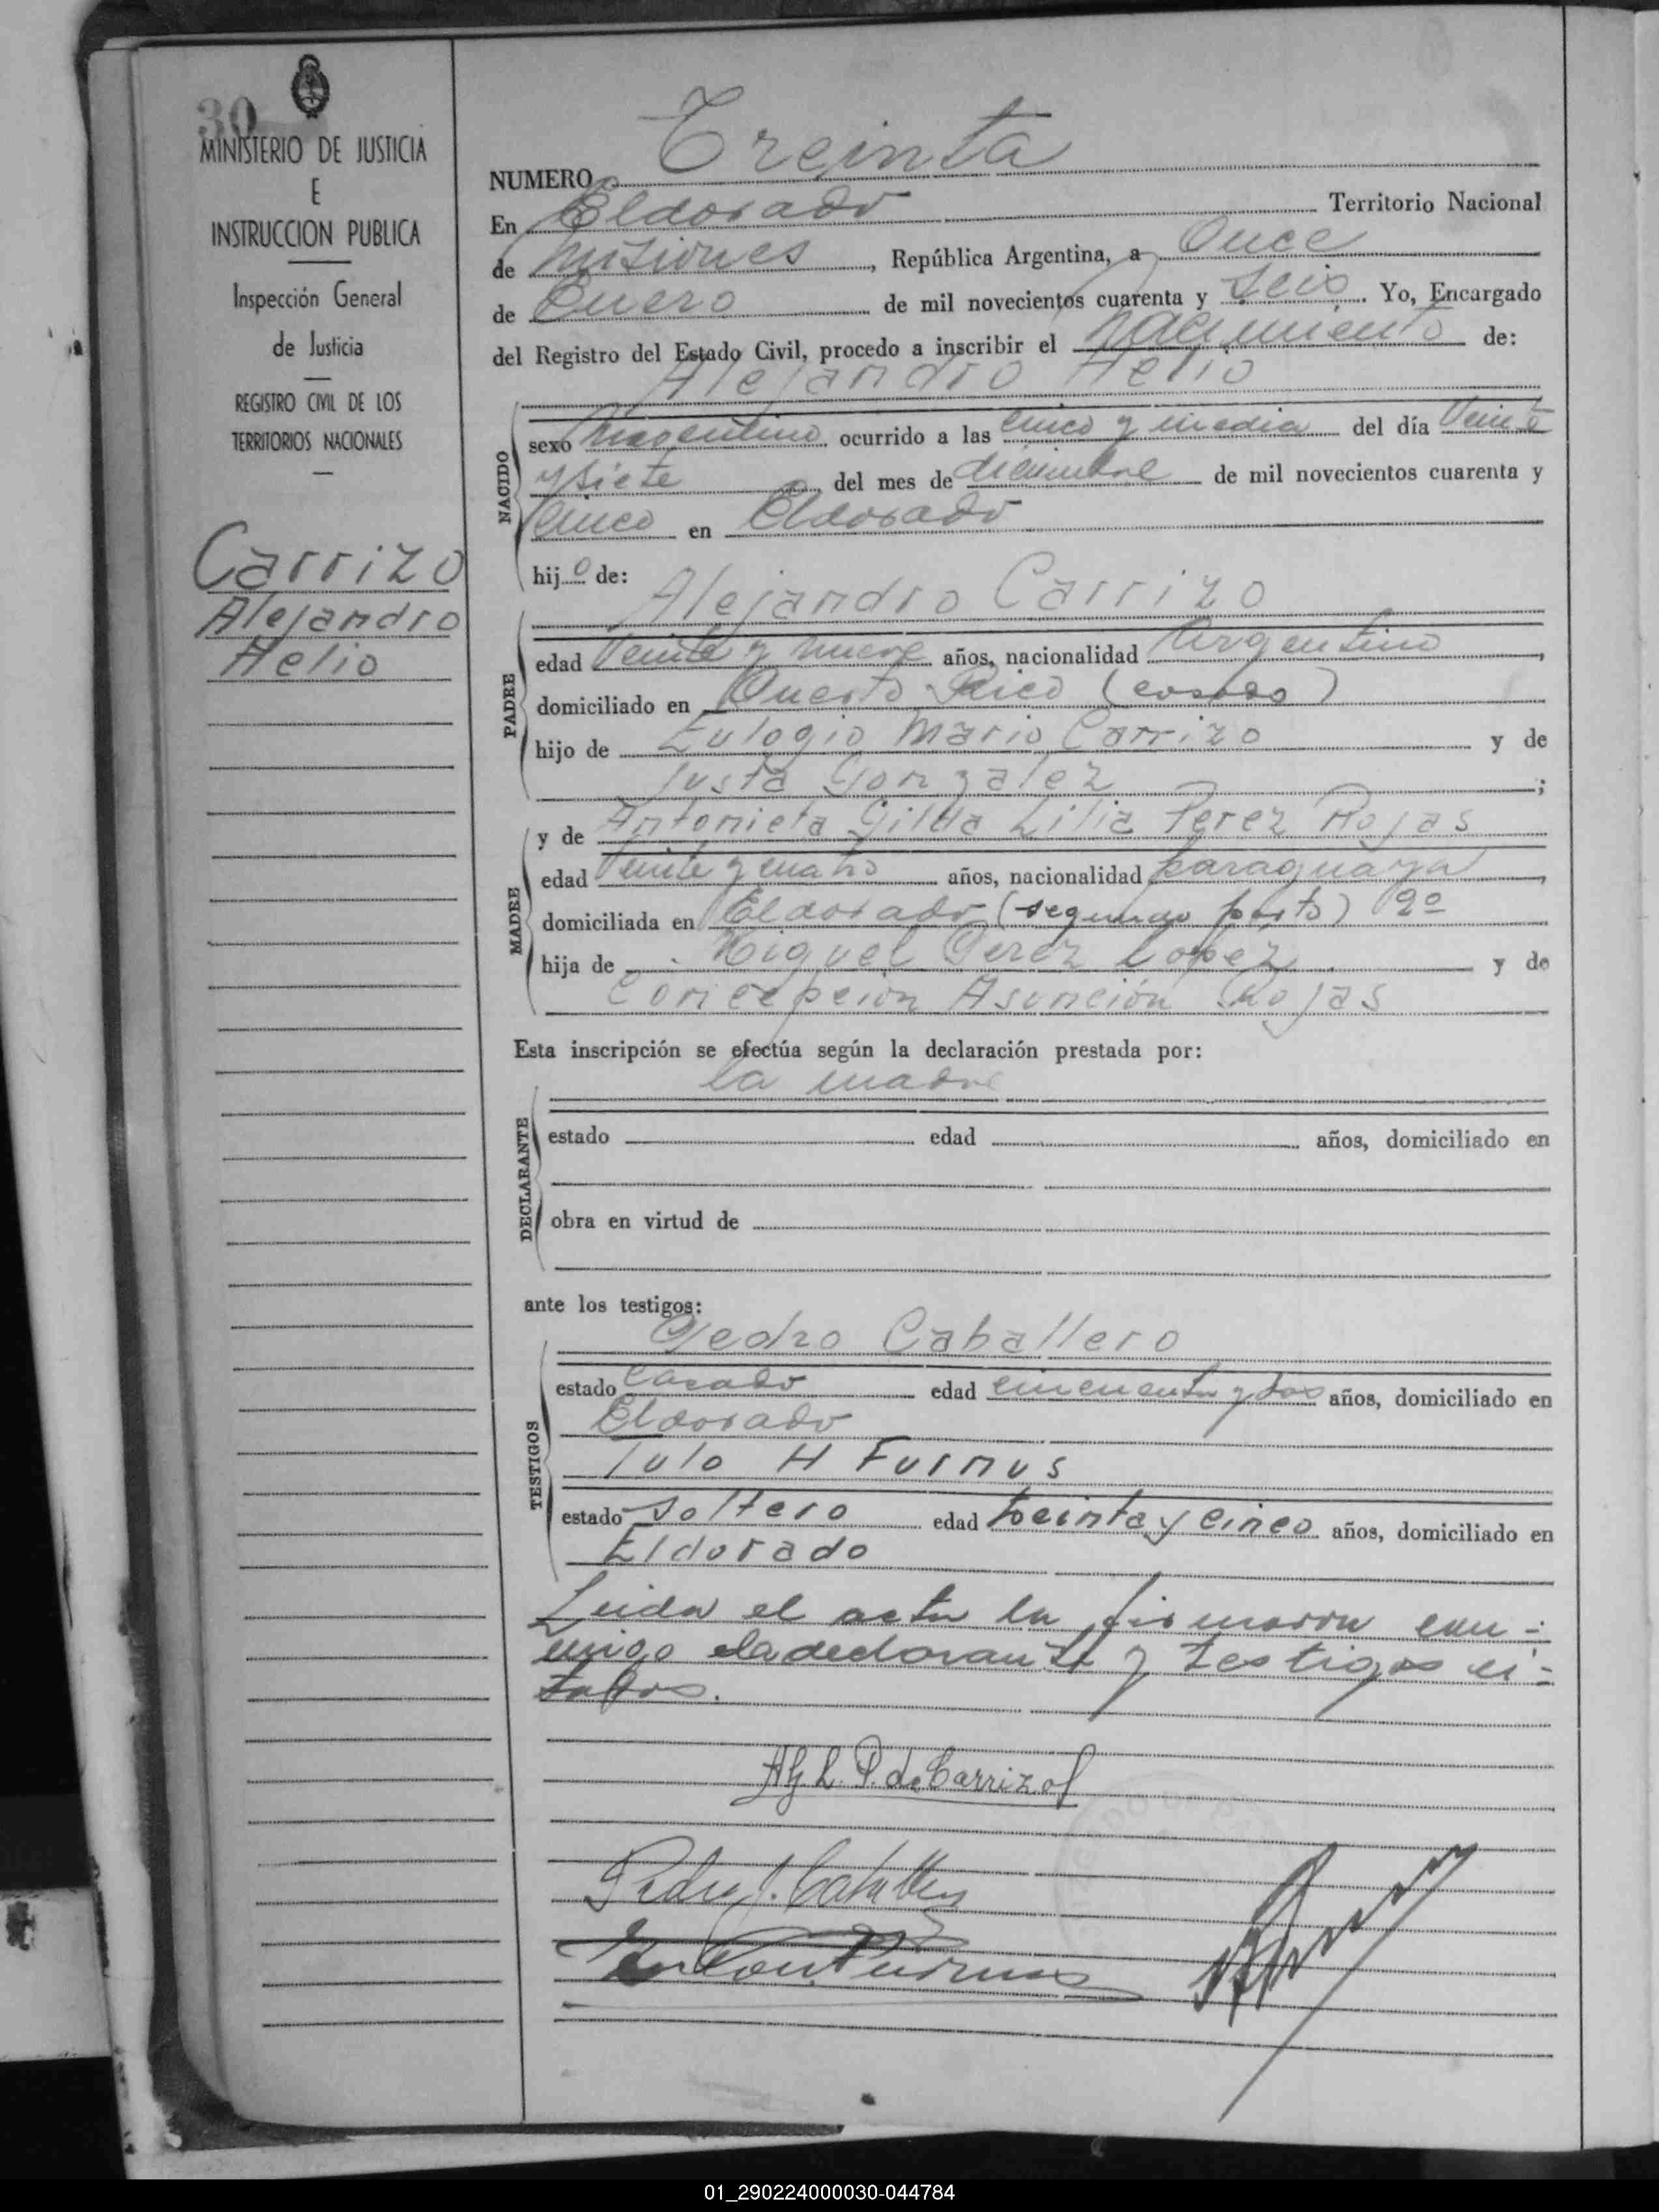 30
MINISTERIO DE JUSTICIA
E
INSTRUCCION PUBLICA
Inspección General
de Justicia
REGISTRO CIVIL DE LOS
TERRITORIOS NACIONALES
Carrizo
Alejandro
Helio
NUMERO Treinta
En Eldorado Territorio Nacional
de Misiones, República Argentina, a Once
de Enero de mil novecientos cuarenta y seis. Yo, Encargado
del Registro del Estado Civil, procedo a inscribir el nacimiento de:
Alejandro Helio
NACIDO
sexo masculino ocurrido a las cinco y media del día Veinte
y siete del mes de diciembre de mil novecientos cuarenta y
Cinco en Eldorado
hijo de:
Alejandro Carrizo
PADRE
edad Veinte y nueve años, nacionalidad Argentino,
domiciliado en Puerto Rico (casado)
hijo de Eulogio Mario Carrizo y de
Justa Gonzalez;
MADRE
y de Antonieta Gilda Lilia Perez Rojas
edad Veinte y cuatro años, nacionalidad paraguaya,
domiciliada en Eldorado (segundo parto) 2º
hija de Miguel Perez Lopez y de
Concepción Asunción Rojas
Esta inscripción se efectúa según la declaración prestada por:
la madre
DECLARANTE
estado edad años, domiciliado en
obra en virtud de
ante los testigos:
Pedro Caballero
TESTIGOS
estado Casado edad cincuenta y dos años, domiciliado en
Eldorado
H Furnus
estado soltero edad treinta y cinco años, domiciliado en
Eldorado
Leida el acta la firmaron con-
migo la declarante y testigos ci-
tados.
A G L P. de Carrizo
Pedro J. Caballero
Furnus
01_290224000030-044784